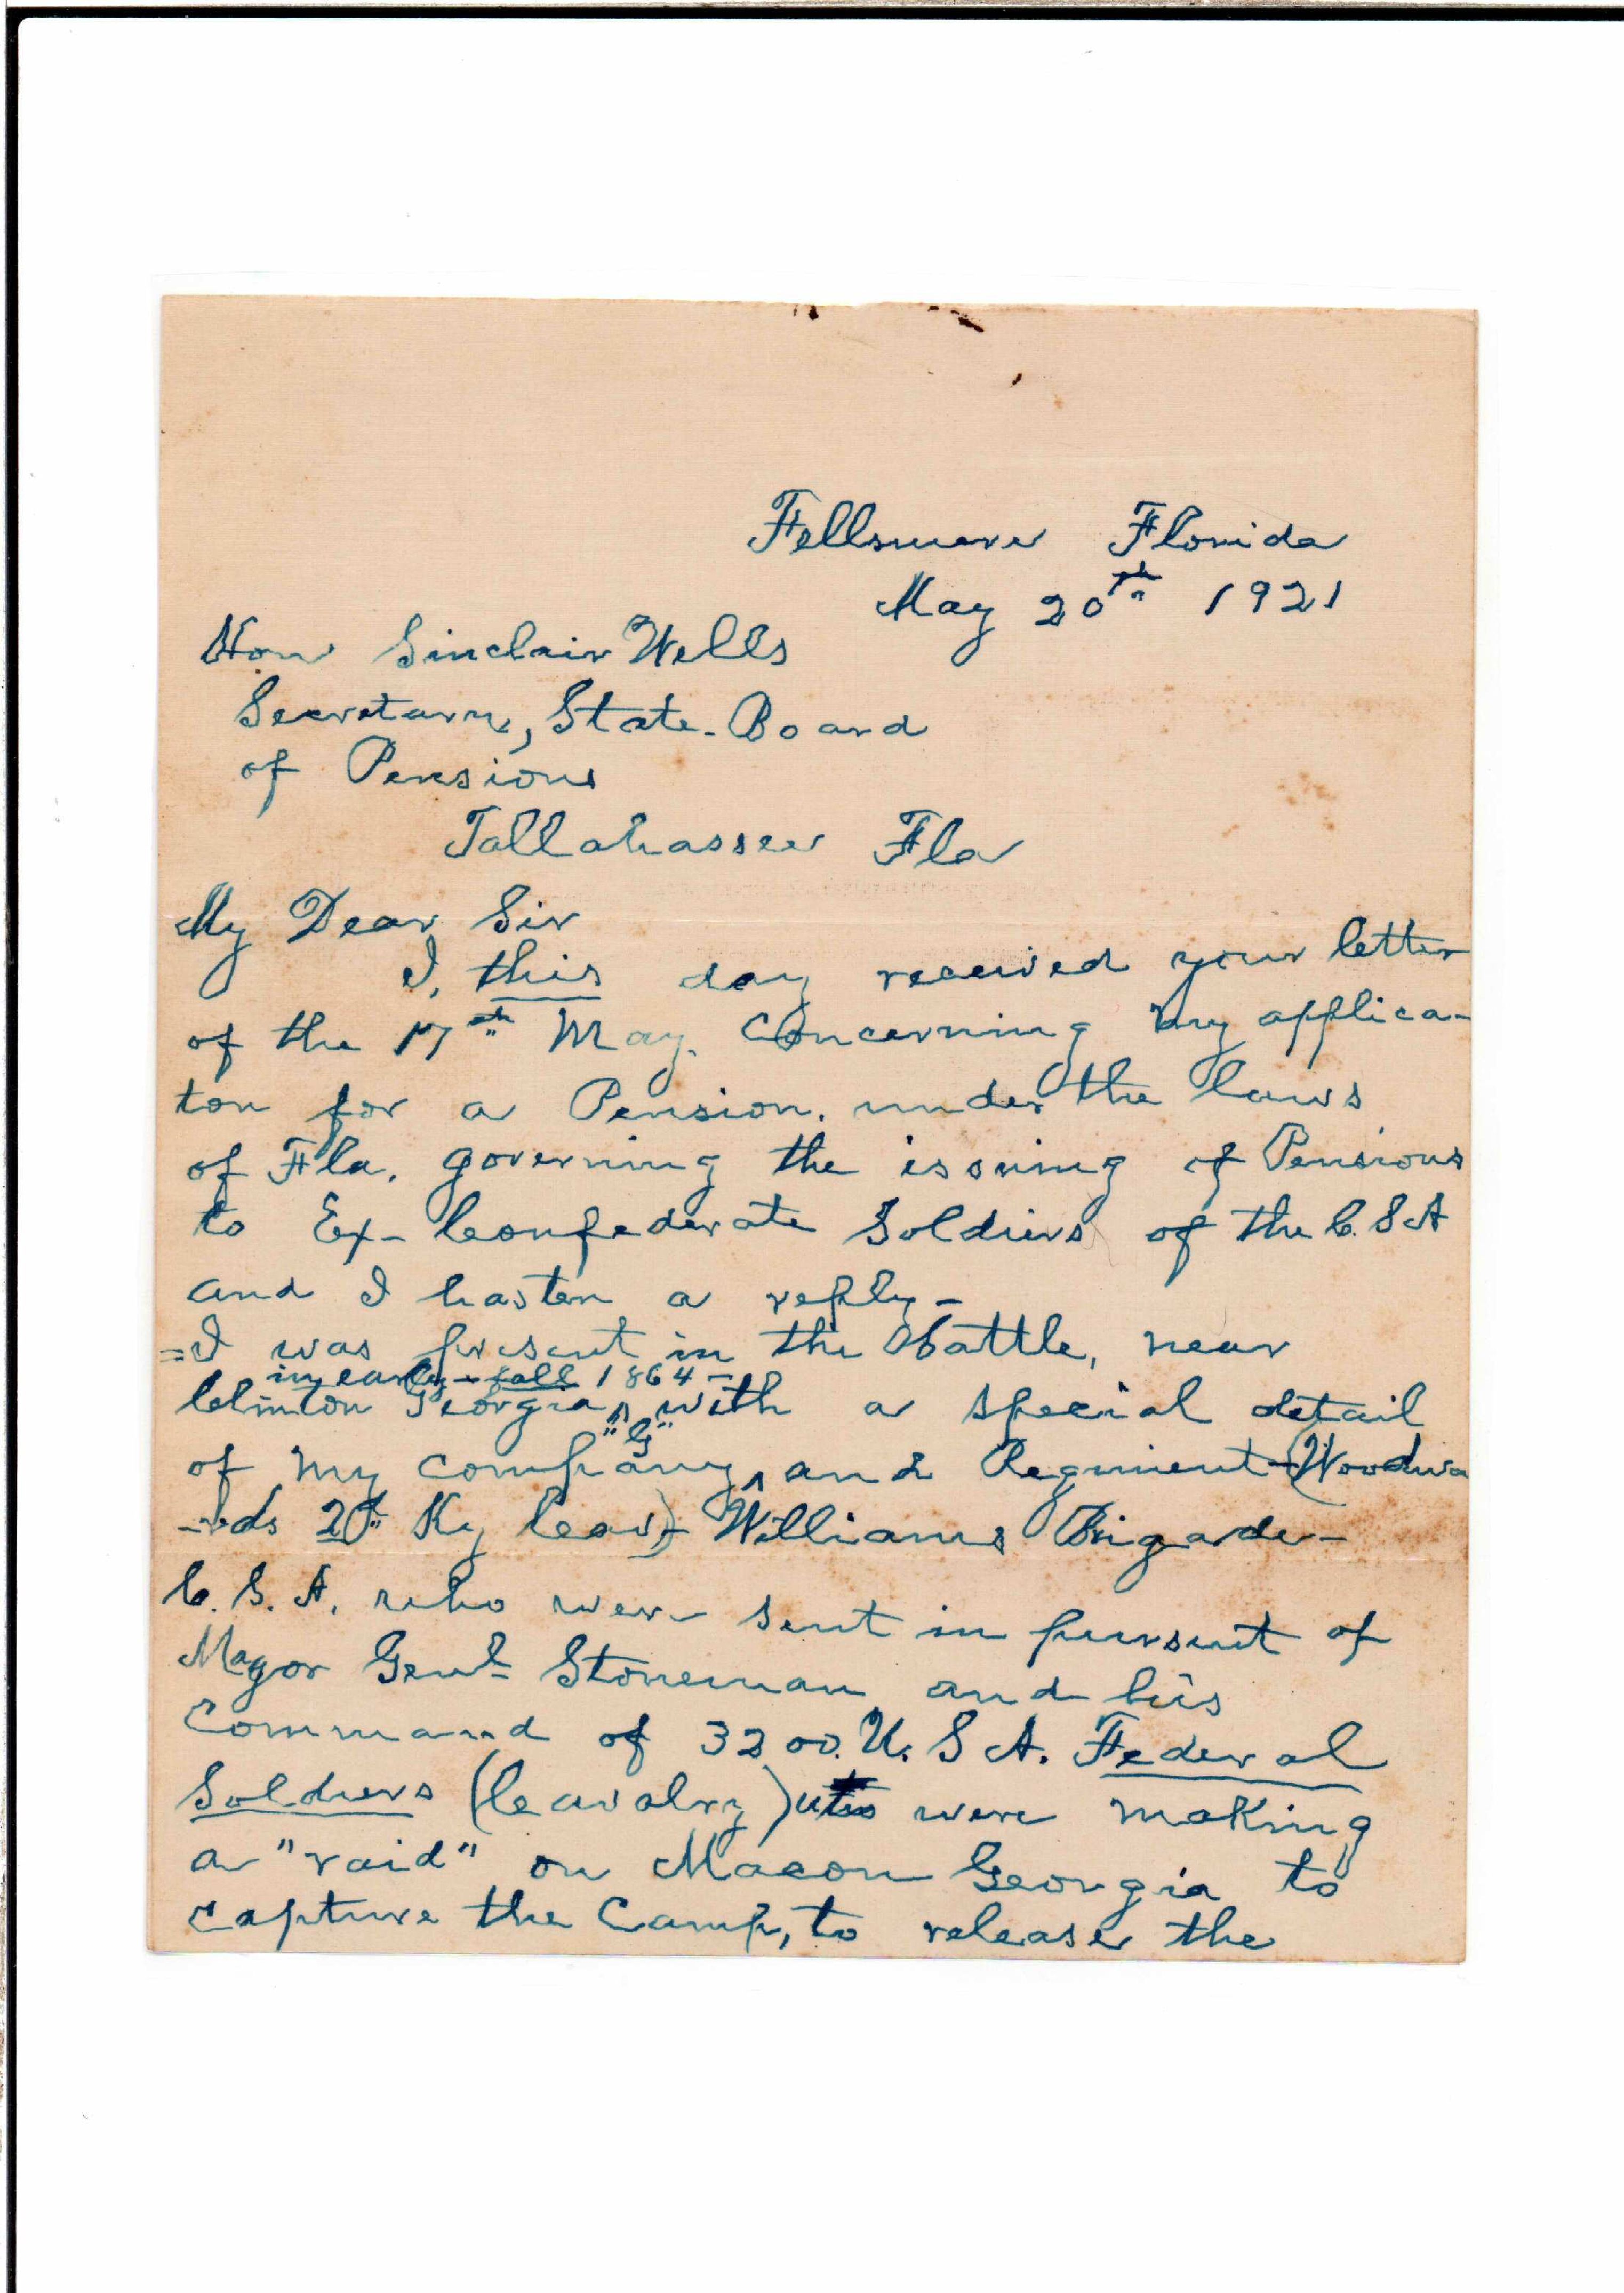 Fellsmere Florida
May 20th 1921
Hon Sinclair Wells
Secretary, State-Board
of Pensions
Tallahassee Fla
My Dear Sir
I, this day received your letter
of the 17th May. Concerning my applica-
ton for a Pension. under the laws
of Fla. governing the issuing of Pensions
to Ex-Confederate Soldiers of the C.S.A
and I hasten a reply-
=I was present in the Battle, near
in early-fall 1864-
Clinton Georgia, with a special detail
"G"
of my company, and Regiment-(Woodwa
-rds 2d Ky Cav)- Williams Brigade-
C.S.A. who were sent in pursuit of
Major Genl- Stoneman and his
Command of 3200. U.S.A. Federal
Soldiers (Cavalry) were making
a "raid" on Macon Georgia to
capture the Camp, to release the